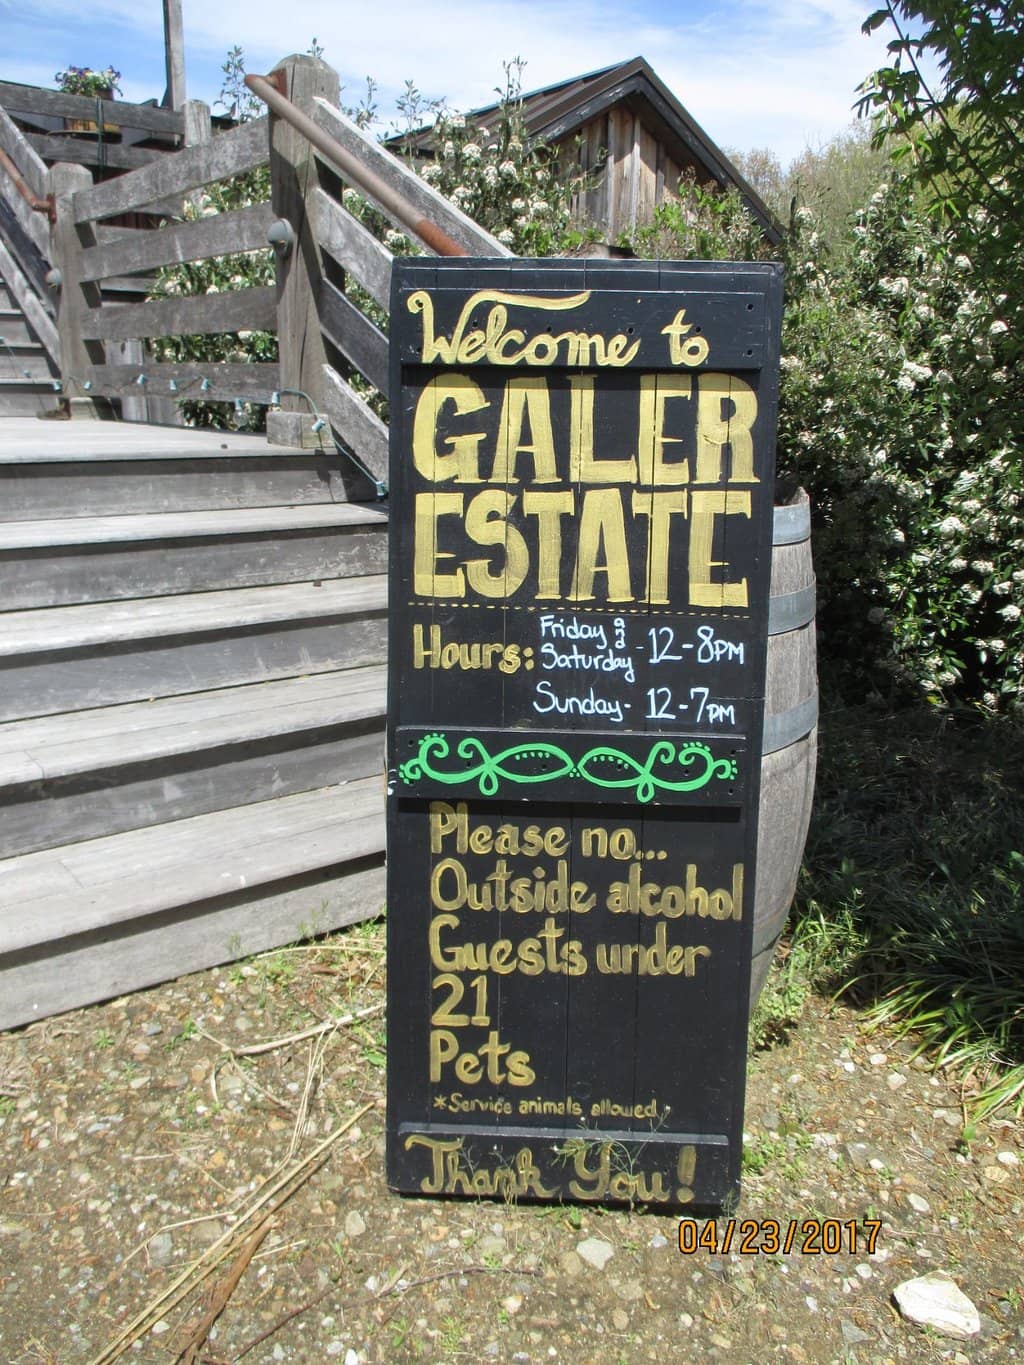 Welcome to
GALER
ESTATE
Hours: Friday &
Saturday - 12-8PM
Sunday - 12-7PM
Please no...
Outside alcohol
Guests under
21
Pets
*Service animals allowed
Thank You!
04/23/2017